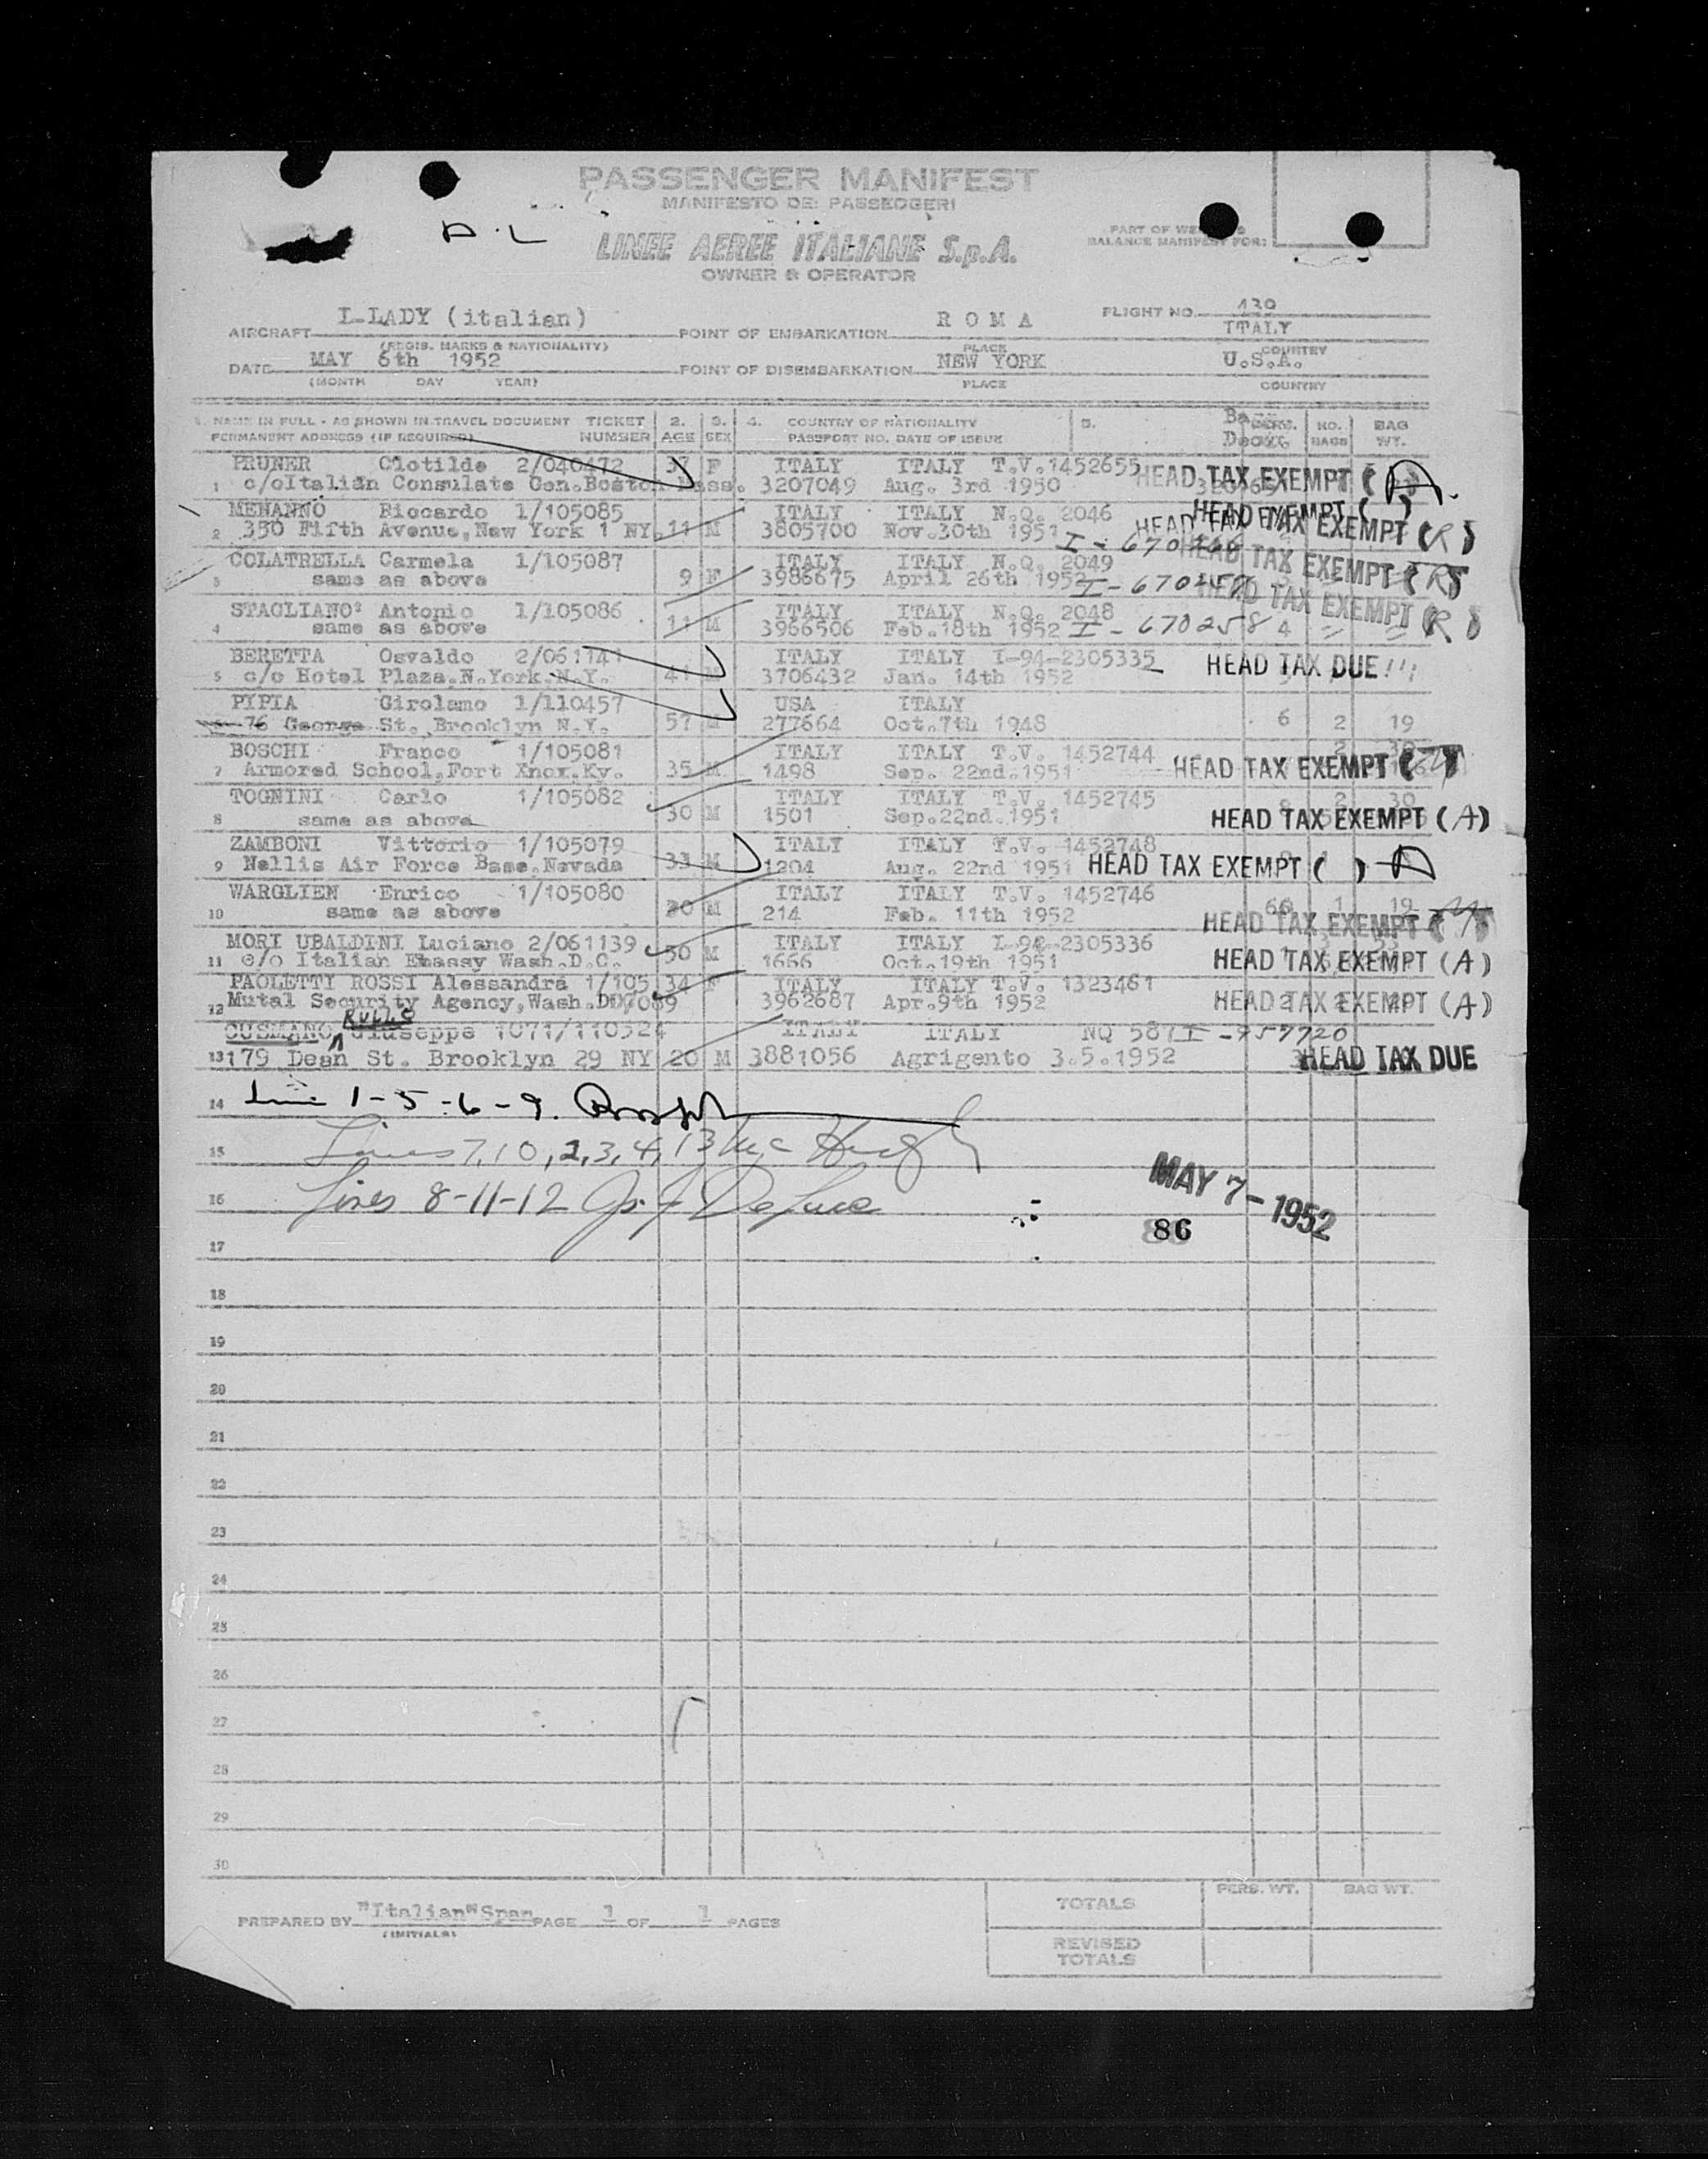 PASSENGER MANIFEST
MANIFESTO DEI PASSEGGERI
LINEE AEREE ITALIANE S.p.A.
OWNER & OPERATOR
PART OF WE
BALANCE MANIFEST FOR:
AIRCRAFT I-LADY (italian) POINT OF EMBARKATION R O M A FLIGHT NO. 439 ITALY
(REGIS. MARKS & NATIONALITY) PLACE COUNTRY
DATE MAY 6th 1952 POINT OF DISEMBARKATION NEW YORK U.S.A.
(MONTH DAY YEAR) PLACE COUNTRY
1. NAME IN FULL - AS SHOWN IN TRAVEL DOCUMENT TICKET 2. 3. 4. COUNTRY OF NATIONALITY 5. PERS. NO. BAG
PERMANENT ADDRESS (IF REQUIRED) NUMBER AGE SEX PASSPORT NO. DATE OF ISSUE BAGS WT.
PRUNER Clotilde 2/040472 37 F ITALY ITALY T.V. 1452655 HEAD TAX EXEMPT (A)
1 c/o Italian Consulate Gen. Boston Mass. 3207049 Aug. 3rd 1950
MENANNO Riccardo 1/105085 ITALY ITALY N.Q. 2046 HEAD TAX EXEMPT ( )
2 350 Fifth Avenue, New York 1 NY. 11 M 3805700 Nov. 30th 1951 HEAD TAX EXEMPT (R)
COLATRELLA Carmela 1/105087 ITALY ITALY N.Q. 2049 HEAD TAX EXEMPT (R)
3 same as above 9 F 3986675 April 26th 1952 I-670257
STAGLIANO' Antonio 1/105086 ITALY ITALY N.Q. 2048 HEAD TAX EXEMPT (R)
4 same as above 11 M 3966506 Feb. 18th 1952 I-670258 4
BERETTA Osvaldo 2/061141 ITALY ITALY I-94-2305335 HEAD TAX DUE!!!
5 c/o Hotel Plaza. N. York. N.Y. 41 M 3706432 Jan. 14th 1952
PIPIA Girolamo 1/110457 USA ITALY
6 76 George St., Brooklyn N.Y. 57 M 277664 Oct. 7th 1948 6 2 19
BOSCHI Franco 1/105081 ITALY ITALY T.V. 1452744
7 Armored School, Fort Knox. Ky. 35 M 1498 Sep. 22nd. 1951 HEAD TAX EXEMPT
TOGNINI Carlo 1/105082 ITALY ITALY T.V. 1452745 2 30
8 same as above 30 M 1501 Sep. 22nd. 1951 HEAD TAX EXEMPT (A)
ZAMBONI Vittorio 1/105079 ITALY ITALY T.V. 1452748
9 Nellis Air Force Base, Nevada 33 M 1204 Aug. 22nd 1951 HEAD TAX EXEMPT ( ) A
WARGLIEN Enrico 1/105080 ITALY ITALY T.V. 1452746 66 1 19
10 same as above 30 M 214 Feb. 11th 1952 HEAD TAX EXEMPT
MORI UBALDINI Luciano 2/061139 50 M ITALY ITALY I-94-2305336
11 c/o Italian Embassy Wash. D.C. 1666 Oct. 19th 1951 HEAD TAX EXEMPT (A)
PAOLETTI ROSSI Alessandra 1/105 34 F ITALY ITALY T.V. 1323461
12 Mutal Security Agency, Wash. DC 7089 3962687 Apr. 9th 1952 HEAD TAX EXEMPT (A)
RULLO
CUSMANO Giuseppe 1071/110524 ITALY ITALY NQ 587 I-957720
13 179 Dean St. Brooklyn 29 NY 20 M 3881056 Agrigento 3.5.1952 HEAD TAX DUE
14 line 1-5-6-9.
15 Lines 7, 10, 2, 3, 4, 13 Mc Hugh
16 Lines 8-11-12 DeLuce
MAY 7-1952
86
17
18
19
20
21
22
23
24
25
26
27
28
29
30
PREPARED BY "Italian" Span PAGE 1 OF 1 PAGES
(INITIALS)
PERS. WT. BAG WT.
TOTALS
REVISED
TOTALS